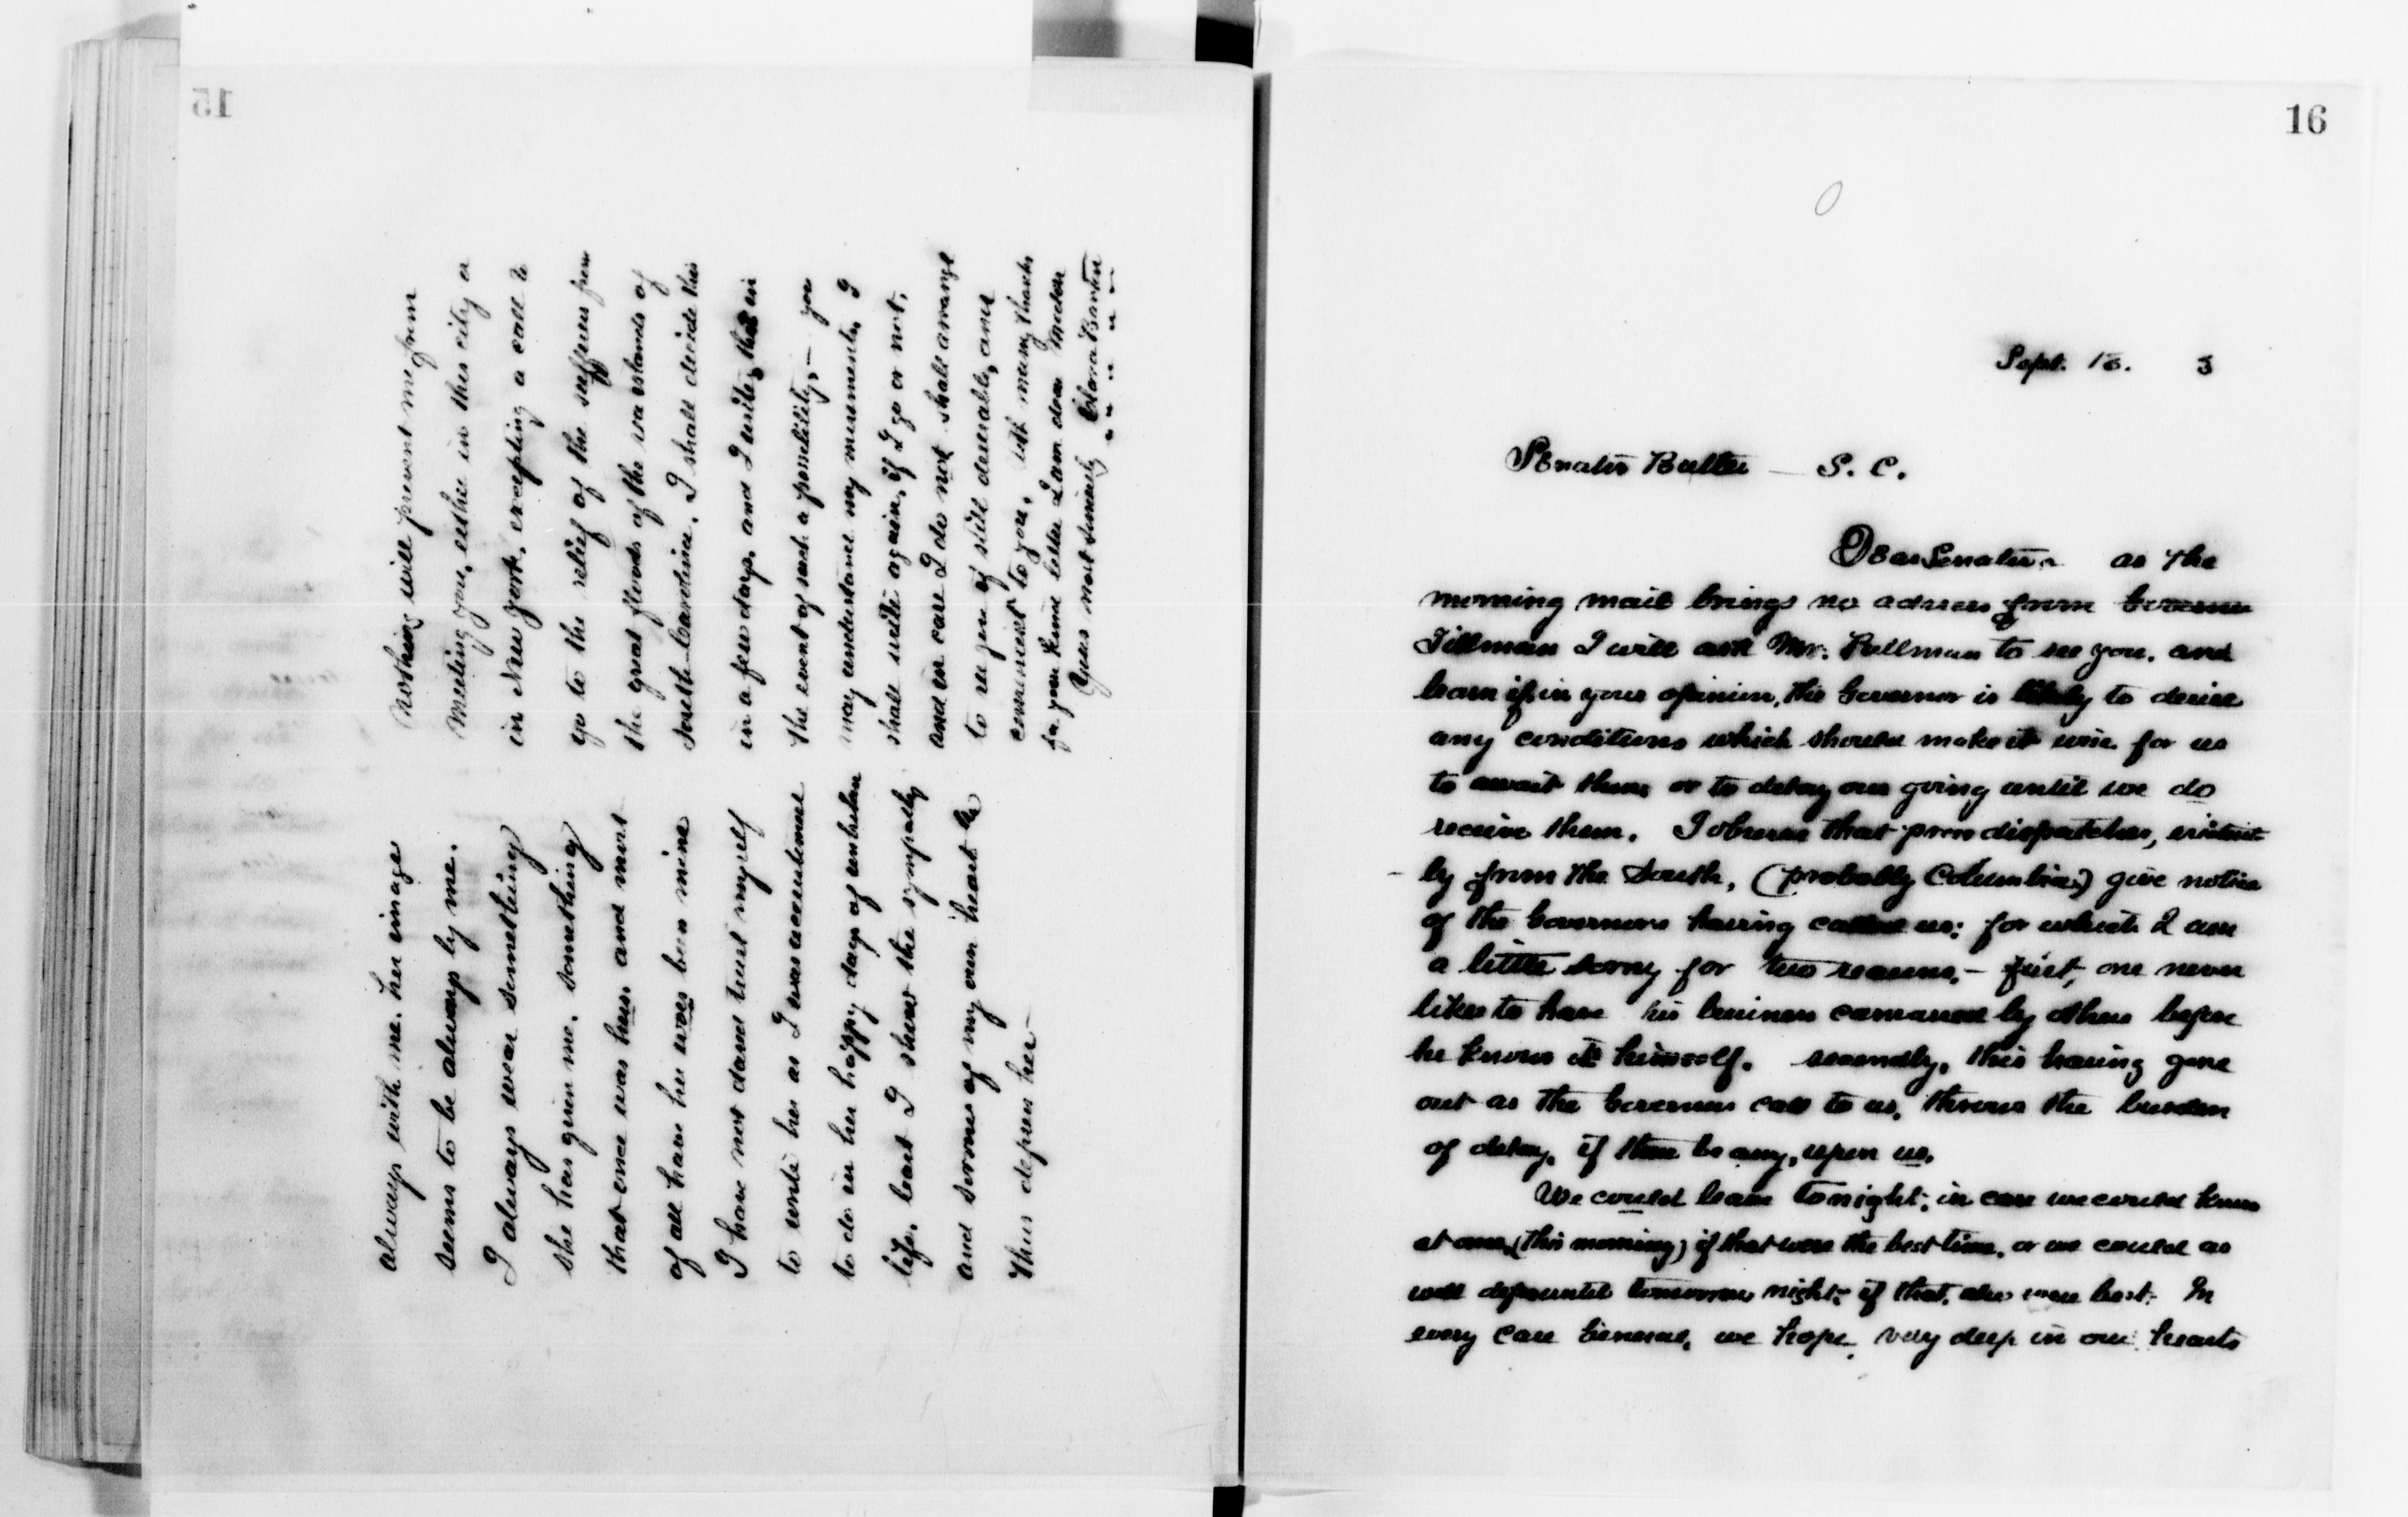 15
always with me. her image
seems to be always by me.
I always wear something
she has given me. something
that once was hers. and most
of all have her woes been mine
I have not dared trust myself
to write her as I was accustomed
to do in her happy days of
life. least I show the sympathy
and sorrow of my own heart &
thus depress her—
nothing will prevent me from
meeting you, either in this city or
in New York. excepting a call to
go to the relief of the sufferers from
the great floods of the sea islands of
South Carolina. I shall decide this
in a few days. and I write this in
the event of such a possibility,— you
may understand my movements, I
shall write again, if I go or not.
and in case I do not shall arrange
to see you if still desirable, and
convenient to you. with many thanks
for your kind letter I am dear
Yours most sincerely Clara Barton
16
Sept. 18. 3
Senator Butler — S. C.
Dear Senator as the
morning mail brings no address from Governor
Tillman I will ask Mr. Pullman to see you. and
learn if in your opinion, the Governor is likely to desire
any conditions which should make it wise for us
to await them or to delay our going until we do
receive them. I observe that press dispatches, evident
- ly from the South, (probably Columbia) give notice
of the Governors having called us; for which I am
a little sorry for two reasons.— first, one never
likes to have his business canvassed by others before
he knows it himself. secondly, this having gone
out as the Governors call to us, throws the burden
of delay. if there be any, upon us.
We could leave tonight; in case we could know
at once (this morning) if that were the best time. or we could as
well defer until tomorrow night; if that, also were best. In
every case General, we hope, very deep in our hearts